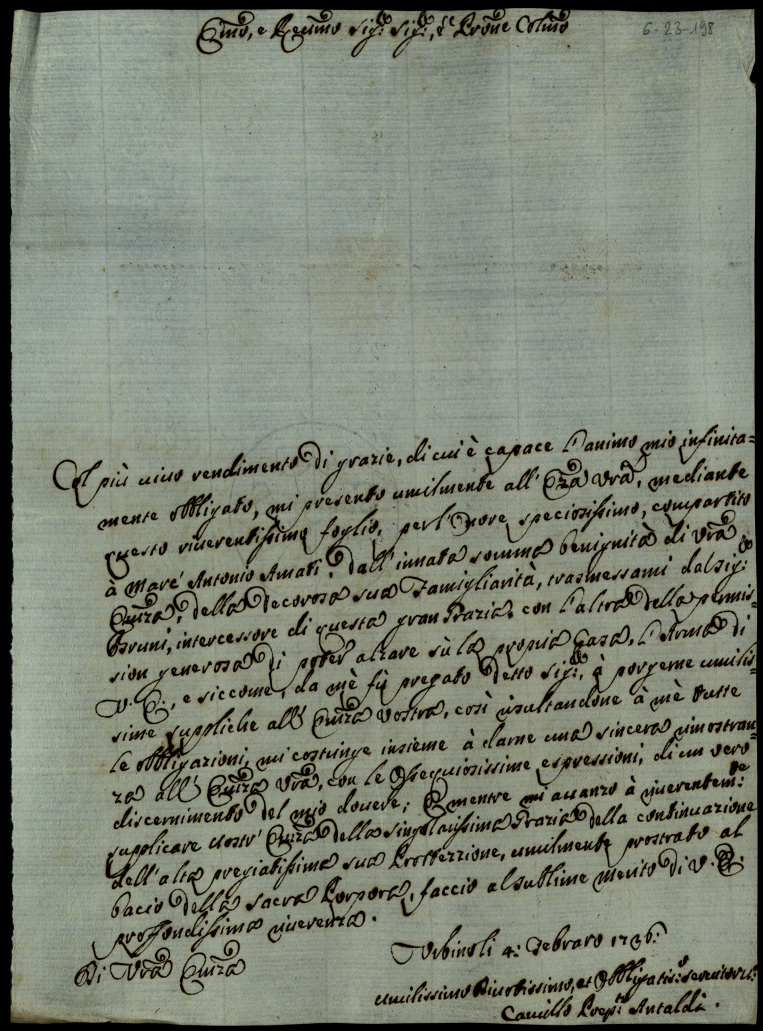 Em̃o, e Rev̄mo Sig.r Sig.r, e Prōne Colmo
6-23-198
Col più vivo rendimento di grazie, di cui è capace l'animo mio infinita=
mente obbligato, mi presento umilmente all' Em̃za Vrā, mediante
questo riverentissimo foglio, per l'onore speciosissimo, compartito
à Marc' Antonio Amati, dall'innata somma benignità di Vrā
Em̃za, della decorosa sua Famigliarità, trasmessami dal Sig.r
Bruni, intercessore di questa gran Grazia, con l'altra della permis=
sion generosa di poter alzare sù la propria Casa, l'Arma di
V. E., e siccome da mè fù pregato detto Sig.r, à porgerne umilis=
sime suppliche all' Em̃za Vostra, così risultandone à mè tutte
le obbligazioni, mi costringe insieme à darne una sincera rimostran=
za all' Em̃za Vrā, con le ossequiosissime espressioni, di un vero
discernimento del mio dovere; E mentre mi avanzo à riverentem.te
supplicare Vostr' Em̃za della singolarissima Grazia della continuazione
dell'alta pregiatissima sua Protezzione, umilmente prostrato al
bacio della Sacra Porpora, faccio al sublime merito di V. E.
profondissima riverenza.
Di Vrā Em̃za
Urbino li 4: Febraro 1736:
Umilissimo Divotissimo, et Obbligatis.o Servitore
Camillo Antaldi.